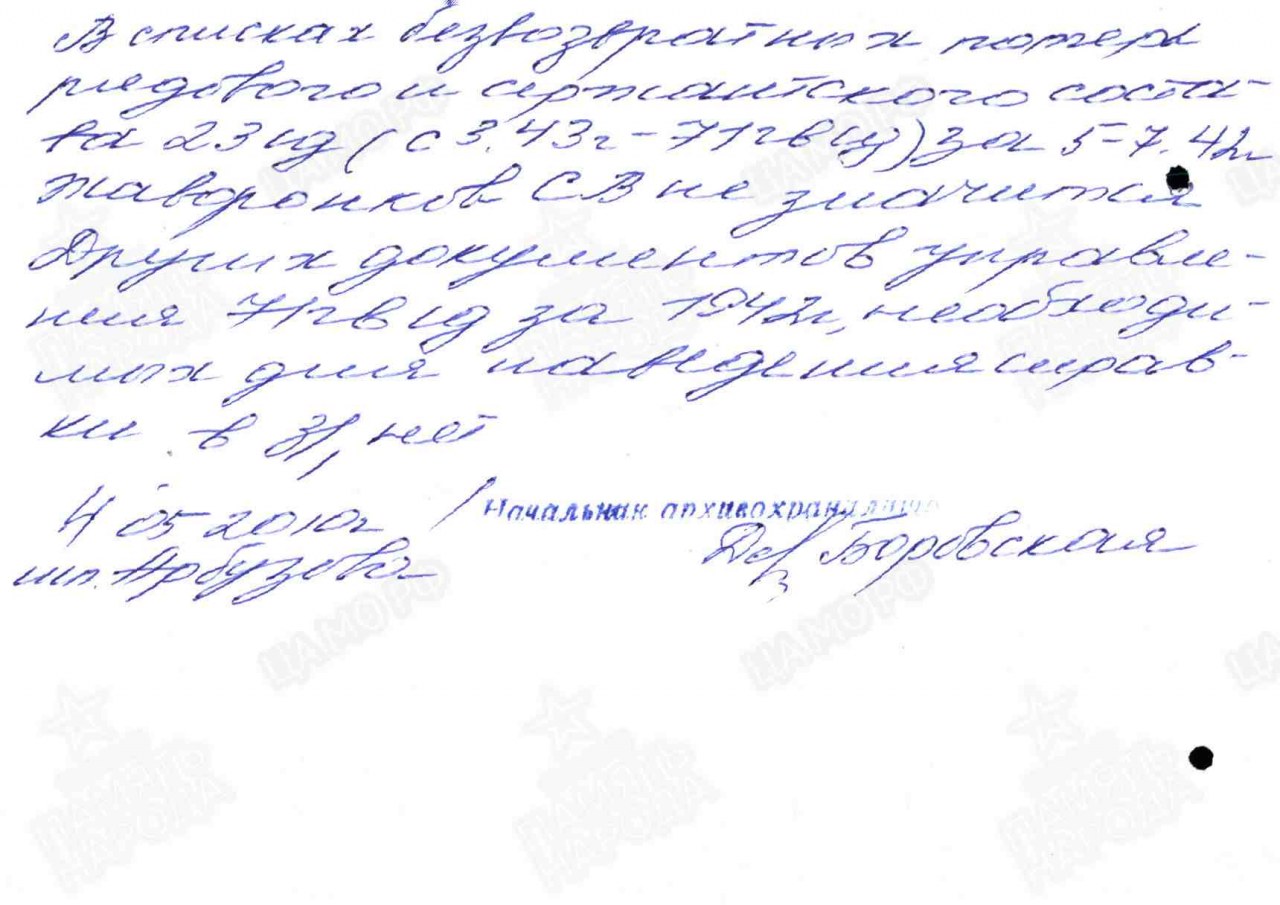 В списках безвозвратных потерь
рядового и сержантского соста-
ва 23 сд (с 3.43г - 71 гв сд) за 5-7.42г
Жаворонков СВ не значится
Других документов управле-
ния 71 гв сд за 1942г, необходи-
мых для наведения справ-
ки в 3/, нет
4 05 2010г
Начальник архивохранилища
исп. Арбузова
Боровская
ЦАМО РФ
ПАМЯТЬ НАРОДА